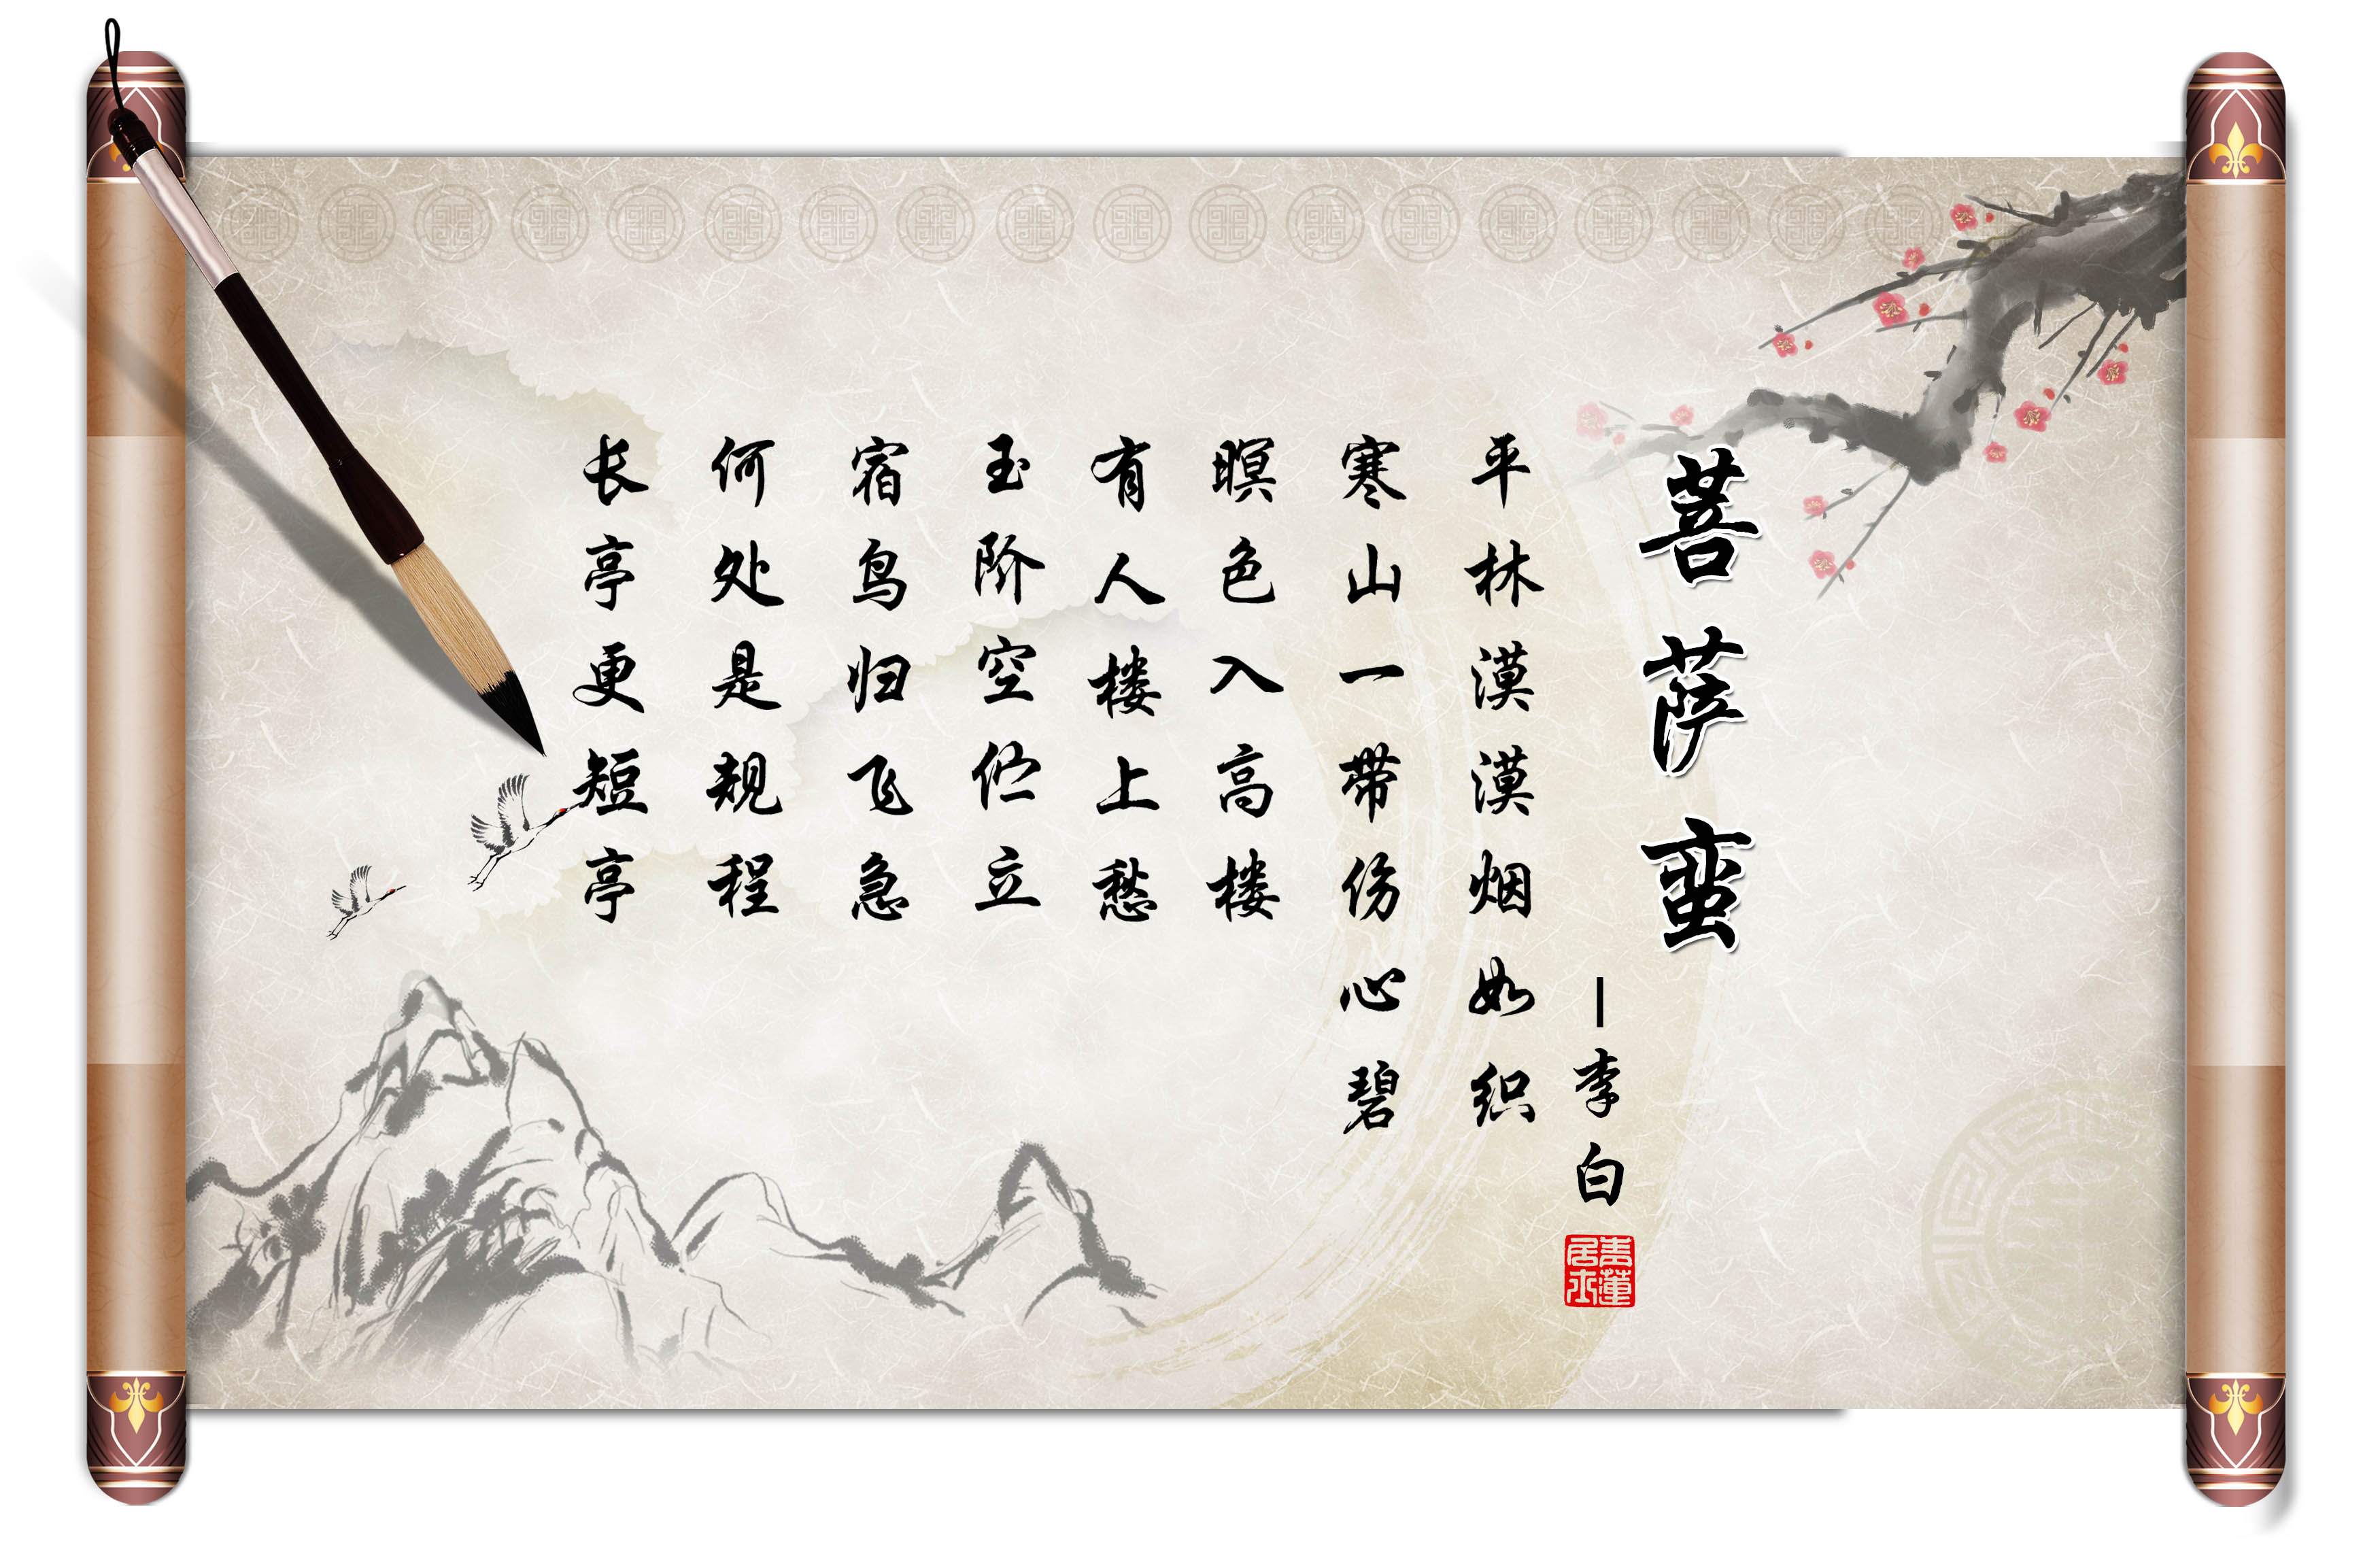 菩萨蛮
—李白
青蓮居士
平林漠漠烟如织
寒山一带伤心碧
暝色入高楼
有人楼上愁
玉阶空伫立
宿鸟归飞急
何处是规程
长亭更短亭